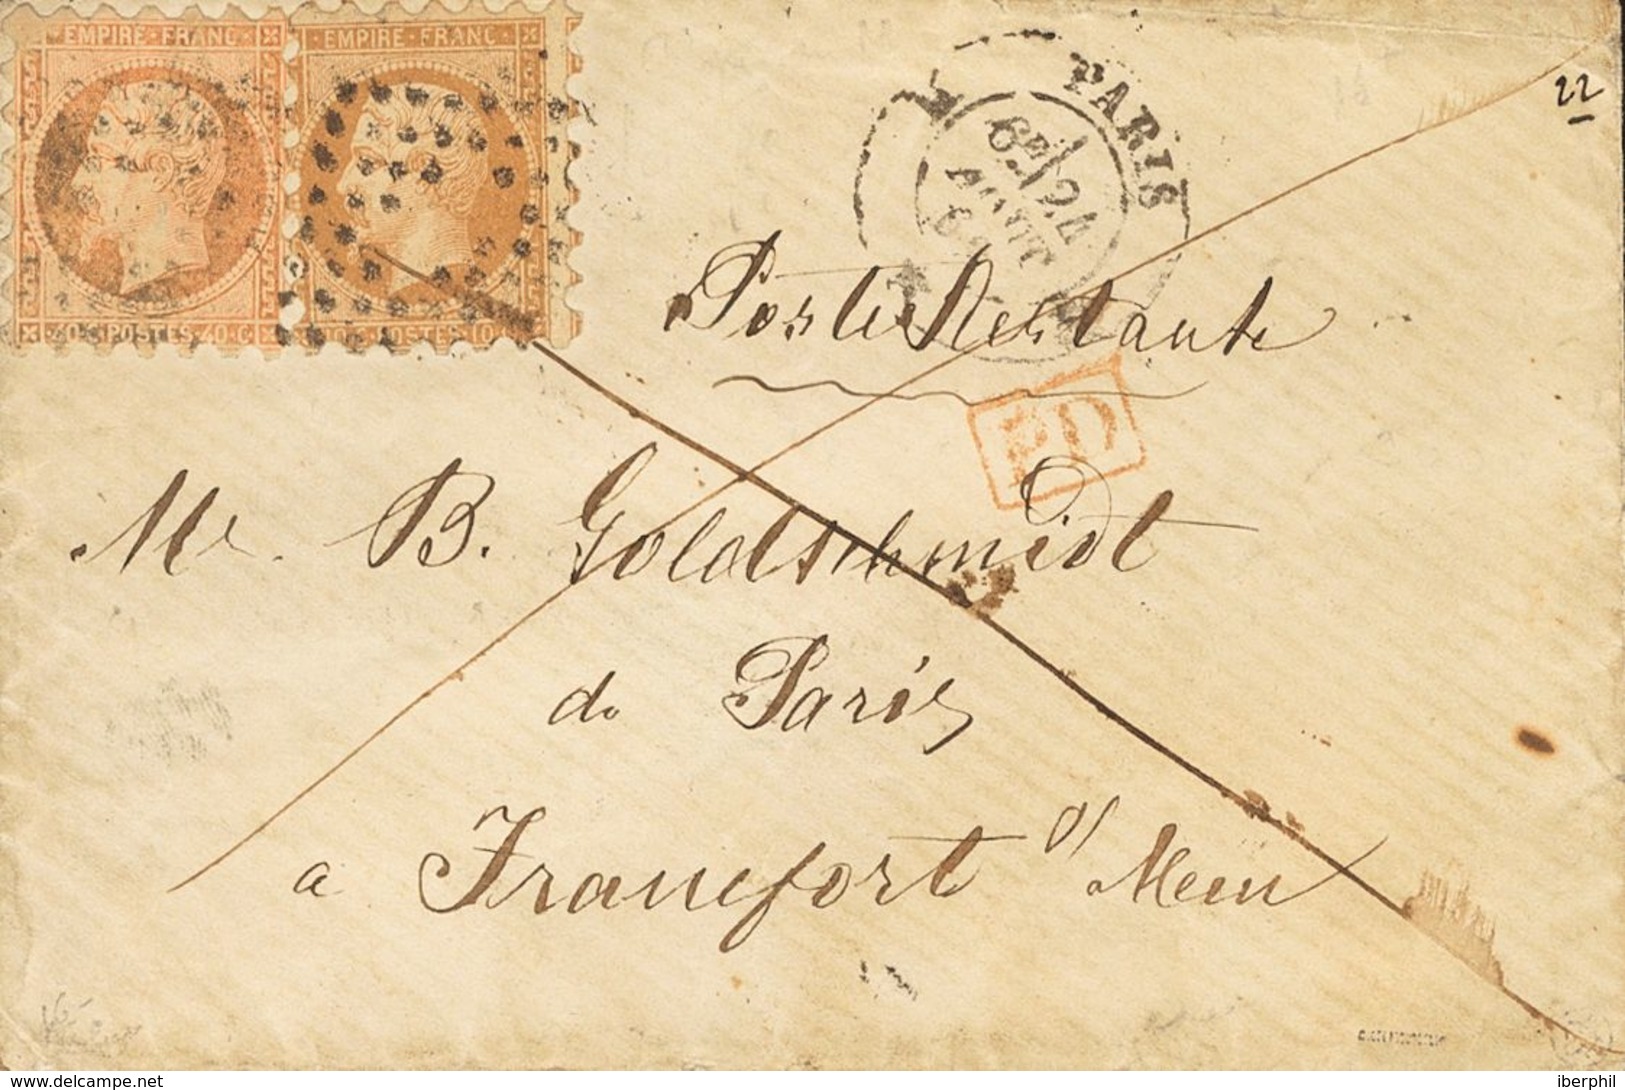 EMPIRE FRANC
EMPIRE FRANC
40 C POSTES 40 C
10 C POSTES 10 C
PARIS
22
Poste Restante
PD
Mr. B. Goldschmidt
de Paris
a Francfort s/ Mein
delcampe.net
iberphil